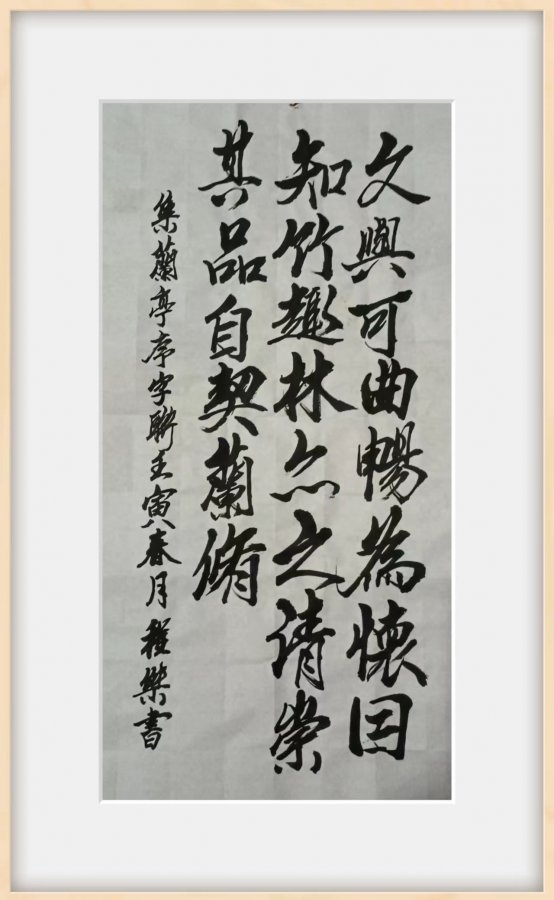 文與可曲暢為懷因
知竹趣林亦之清崇
其品自契蘭脩
集蘭亭序字聯壬寅春月程書